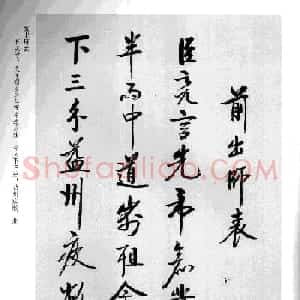 前出師表
臣亮言先帝創業
半而中道崩殂今
下三分益州疲弊
Shufaziliao.com